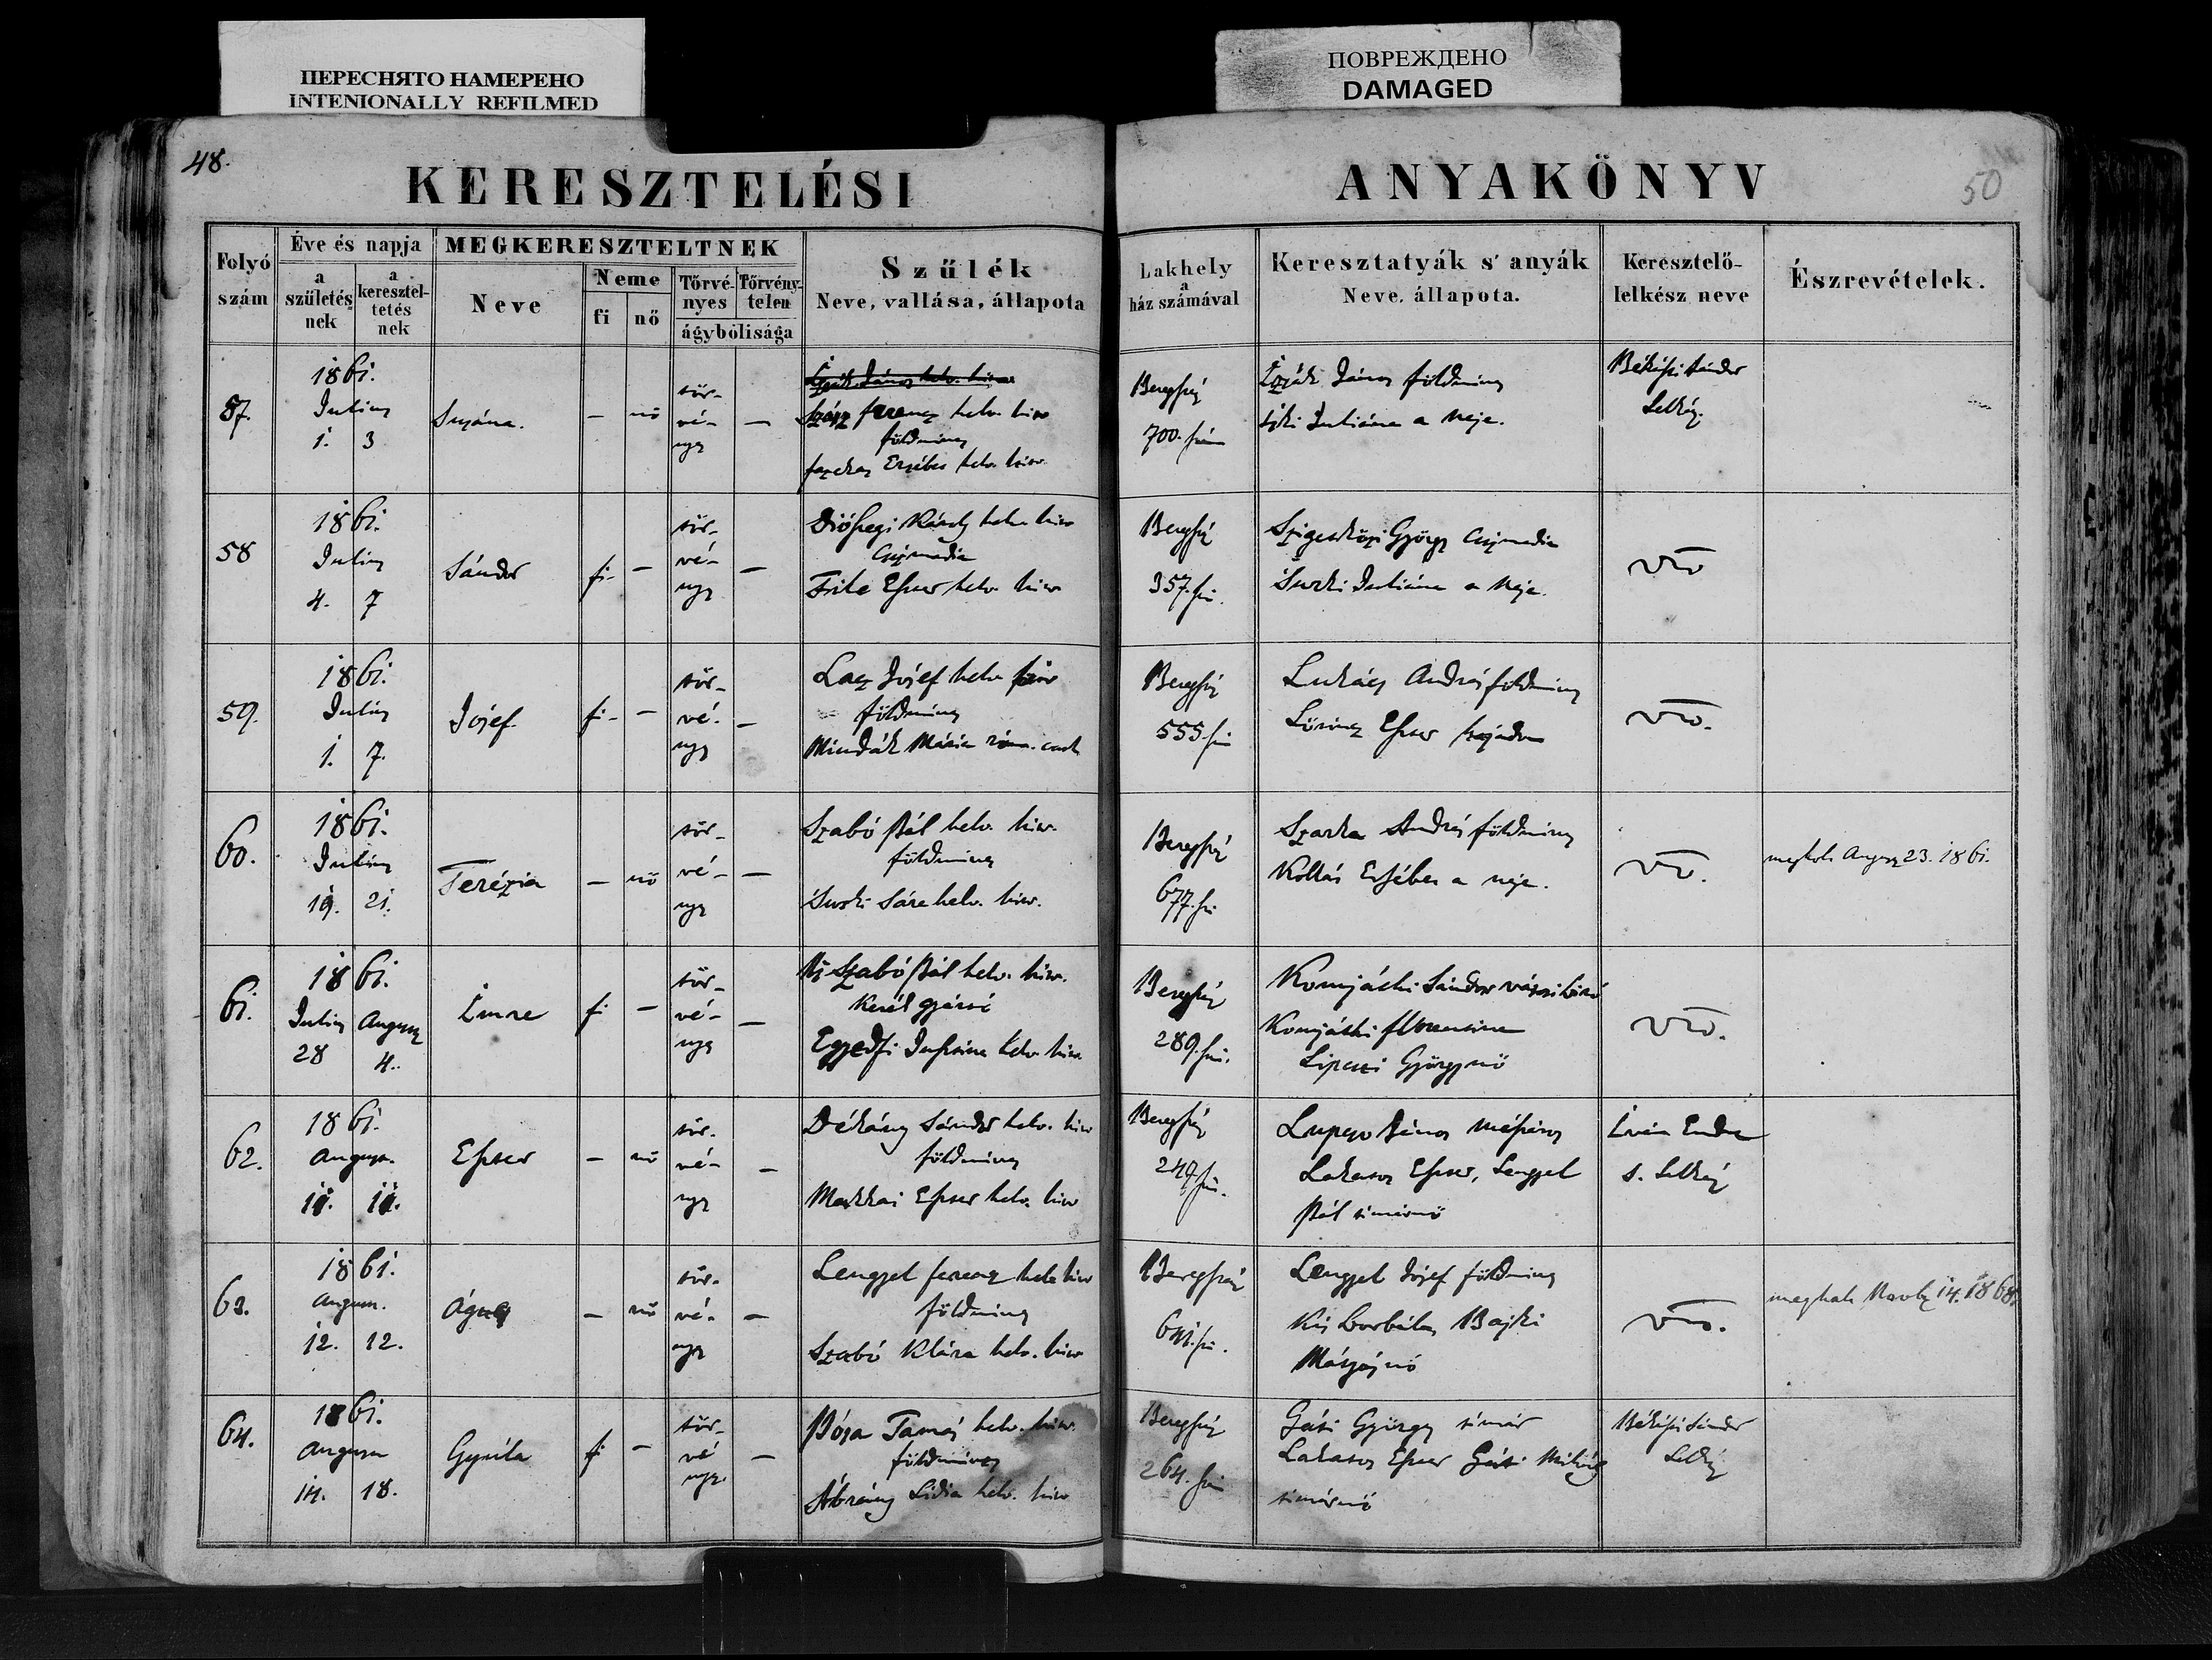 ПЕРЕСНЯТО НАМЕРЕНО
INTENIONALLY REFILMED
ПОВРЕЖДЕНО
DAMAGED
48.
KERESZTELÉSI
ANYAKÖNYV
50
Folyó szám
Éve és napja
a születés nek
a keresztel- tetés nek
MEGKERESZTELTNEK
Neve
Neme
fi
nő
Törvé- nyes
Törvény- telen
ágybólisága
Szűlék
Neve, vallása, állapota
Lakhely
a
ház számával
Keresztatyák s' anyák
Neve, állapota.
Keresztelő-
lelkész neve
Észrevételek.
57.
1861.
Julius
1. 3
Susána.
— nő
tör-
vé-
nyes
—
Szász Ferencz helv. hitv
földmives
Fazekas Erzsébet helv. hitv.
Beregszász
700. szám
Izsák János földmives
Juliána a neje.
Békési Sándor
Lelkész.
58
1861.
Julius
4. 7
Sándor
fi- —
tör-
vé-
nyes
—
Diószegi Károly helv. hitv
Csizmadia
Eszter helv. hitv
Beregszász
357. sz.
György Csizmadia
Juliána a neje.
59.
1861.
Julius
1. 7.
Josef
fi- —
tör-
vé-
nyes
—
Josef helv. hitv
földmives
Mindák Mária róm. cath
Beregszász
555. sz
Lukács András földmives
Lörincz Eszter hajadon
60.
1861.
Julius
19. 21.
Terézia
— nő
tör-
vé-
nyes
—
Szabó Pál helv. hitv.
földmives
Sára helv. hitv.
Beregszász
677. sz
Szarka András földmives
Kollár Ersébet a neje.
megholt August 23. 1861.
61.
1861.
Julius August
28 4.
Imre
fi —
tör-
vé-
nyes
—
Ifj Szabó Pál helv. hitv.
Kerék gyártó
Egyedfi Jusztina helv. hitv.
Beregszász
289. sz.
Komjáthi Sándor városi biró
Komjáthi Florentina
György nő
62.
1861.
August.
11. 11.
Eszter
— nő
tör-
vé-
nyes
—
Dékány Sándor helv. hitv
földmives
Makkai Eszter helv. hitv
Beregszász
János Mészáros
Lakatos Eszter, Lengyel
Pál timárnő
Endre
s. Lelkész
63.
1861.
August.
12. 12.
Ágnes
— nő
tör-
vé-
nyes
—
Lengyel Ferencz helv hitv
földmives
Szabó Klára helv. hitv
Beregszász
Lengyel Josef földmives
Kis Borbála, Bajki
Mátyásnő
meghalt Martz 14. 1868.
64.
1861.
August
14. 18.
Gyula
fi —
tör-
vé
nyes.
—
Bósa Tamás helv. hitv.
földmives
Ábrány Lidia helv. hitv
Beregszász
264. sz
Gáti György timár
Lakatos Eszter Gáti Mihály
timárnő
Békési Sándor
Lelkész